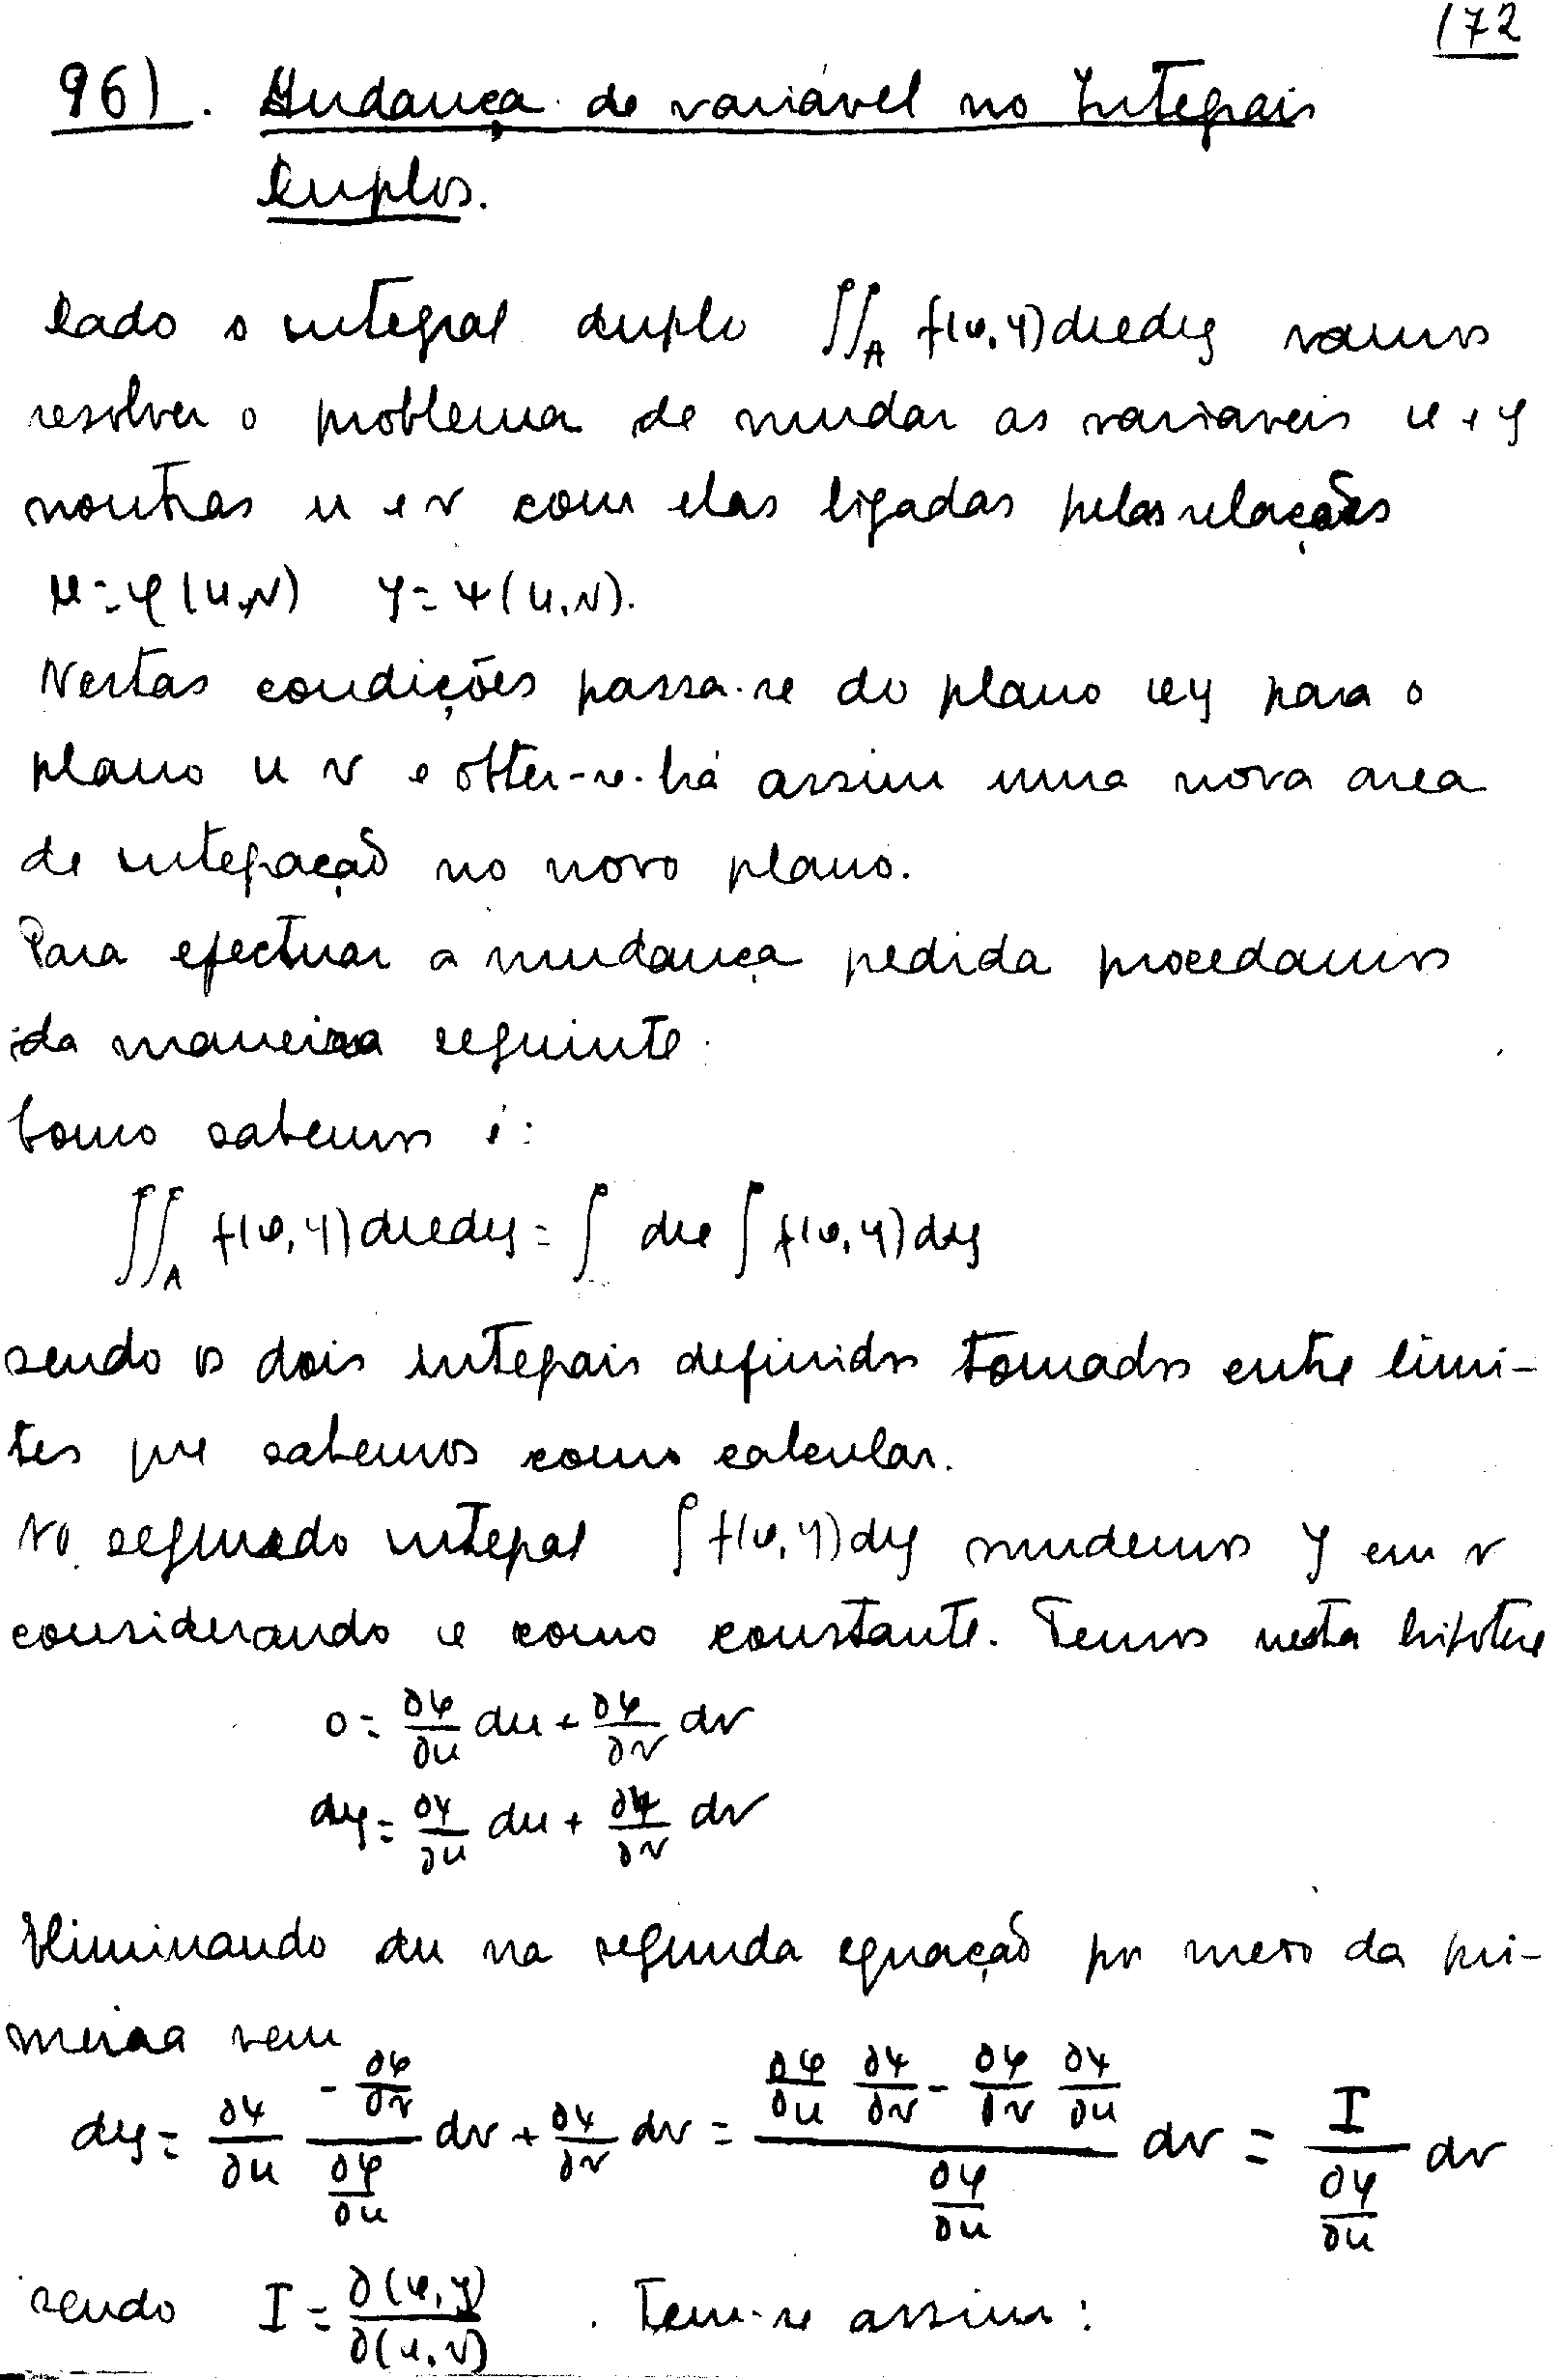 172
96). Mudança de variável no Integrais
Duplos.
Dado o integral duplo ∬_A f(x,y)dxdy vamos
resolver o problema de mudar as variaveis x e y
noutras u e v com elas ligadas pelas relações
x=φ(u,v) y=ψ(u,v).
Nestas condições passa-se do plano xy para o
plano u v e obter-se-há assim uma nova area
de integração no novo plano.
Para efectuar a mudança pedida procedamos
da maneira seguinte.
Como sabemos é:
∬_A f(x,y)dxdy = ∫ dx ∫ f(x,y)dy
sendo os dois integrais definidos tomados entre limi-
tes que sabemos como calcular.
No segundo integral ∫ f(x,y)dy mudemos y em v
considerando x como constante. Temos nesta hipotese
0 = ∂φ/∂u du + ∂φ/∂v dv
dy = ∂ψ/∂u du + ∂ψ/∂v dv
Eliminando du na segunda equação por meio da pri-
meira vem
dy = ∂ψ/∂u (-∂φ/∂v)/(∂φ/∂u) dv + ∂ψ/∂v dv = (∂φ/∂u ∂ψ/∂v - ∂φ/∂v ∂ψ/∂u)/(∂φ/∂u) dv = I/(∂φ/∂u) dv
sendo I = ∂(x,y)/∂(u,v) . Tem-se assim: